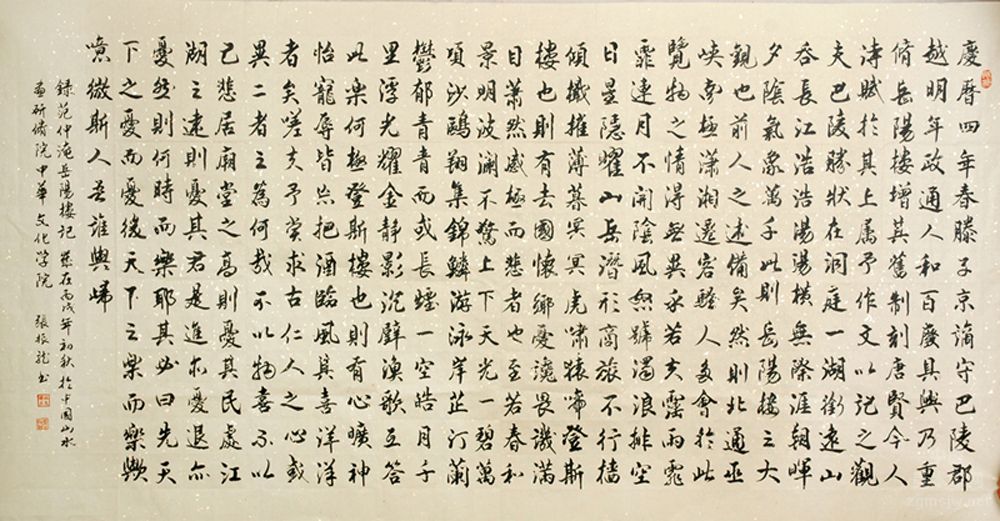 慶曆四年春滕子京謫守巴陵郡
越明年政通人和百廢具興乃重
脩岳陽樓增其舊制刻唐賢今人
詩賦於其上属予作文以記之觀
夫巴陵勝狀在洞庭一湖銜遠山
吞長江浩浩湯湯橫無際涯朝暉
夕陰氣象萬千此則岳陽樓之大
觀也前人之述備矣然則北通巫
峽南極瀟湘遷客騷人多會於此
覽物之情得無異乎若夫霪雨霏
霏連月不開陰風怒號濁浪排空
日星隱曜山岳潛形商旅不行檣
傾檝摧薄暮冥冥虎嘯猿啼登斯
樓也則有去國懷鄉憂讒畏譏滿
目蕭然感極而悲者也至若春和
景明波瀾不驚上下天光一碧萬
頃沙鷗翔集錦鱗游泳岸芷汀蘭
鬱郁青青而或長煙一空皓月千
里浮光耀金靜影沉璧漁歌互答
此樂何極登斯樓也則有心曠神
怡寵辱皆忘把酒臨風其喜洋洋
者矣嗟夫予嘗求古仁人之心或
異二者之為何哉不以物喜不以
己悲居廟堂之高則憂其民處江
湖之遠則憂其君是進亦憂退亦
憂然則何時而樂耶其必曰先天
下之憂而憂後天下之樂而樂歟
噫微斯人吾誰與歸
錄范仲淹岳陽樓記 歲在丙戌年初秋於中國山水
畫研修院中華文化学院 張振龍書